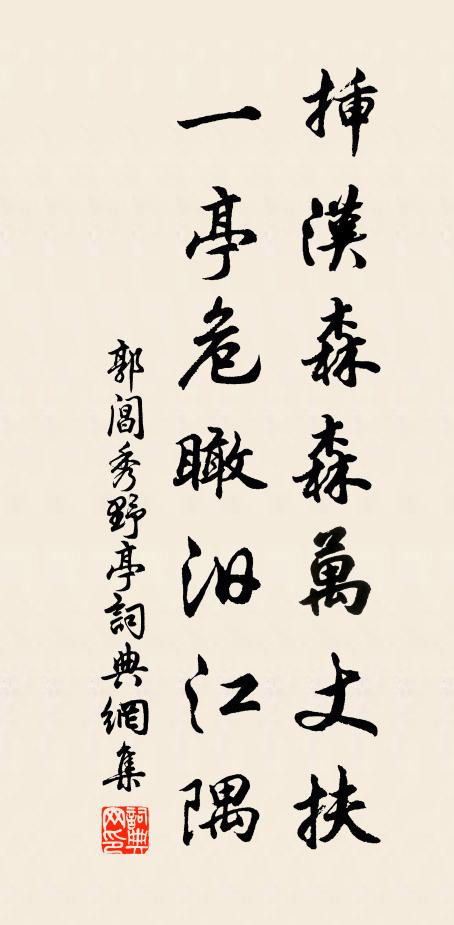 挿漢森森萬丈扶
一亭危瞰汨江隅
郭閶秀野亭詞典網集
詞典网印